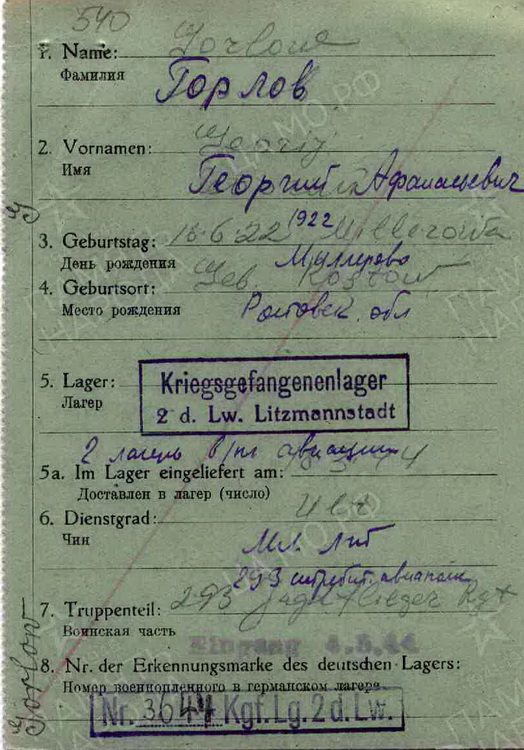 540
1. Name: Gorlow
Фамилия
Горлов
2. Vornamen: Georgij
Имя
Георгий Афанасьевич
3. Geburtstag: 16.6.22 1922 Millerowo
День рождения Миллерово
4. Geburtsort: Geb Rostow
Место рождения Ростовск. обл
5. Lager: Kriegsgefangenenlager
Лагер 2 d. Lw. Litzmannstadt
2 лагерь в/пл авиации
5a. Im Lager eingeliefert am:
Доставлен в лагер (число)
6. Dienstgrad: Ult
Чин Мл. Лт
293 истребит. авиаполк
7. Truppenteil: 293 Jagdflieger Rgt
Воинская часть
Eingang 4.5.44
8. Nr. der Erkennungsmarke des deutschen Lagers:
Номер военнопленного в германском лагере
Nr. 3644 Kgf. Lg. 2 d. Lw.
G
Gorlow